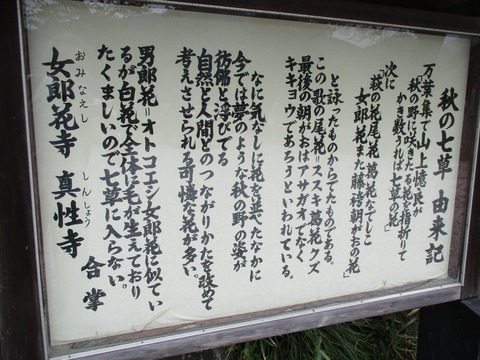 秋の七草 由来記
万葉集で山上憶良が
「秋の野に咲きたる花を指折りて
かき数うれば七草の花」
次に
「萩の花尾花葛花なでしこ
女郎花また藤袴朝がおの花」
と詠ったものからでたものである。
この歌の尾花=ススキ葛花=クズ
最後の朝がおはアサガオでなく
キキョウであろうといわれている。
なに気なしに花を並べたなかに
今では夢のような秋の野の姿が
彷彿と浮びでる
自然と人間とのつながりかたを改めて
考えさせられる可憐な花が多い。
男郎花=オトコエシ女郎花に似てい
るが白花で全体に毛が生えており
たくましいので七草に入らない。
おみなえし しんしょう
女郎花寺 真性寺
合掌